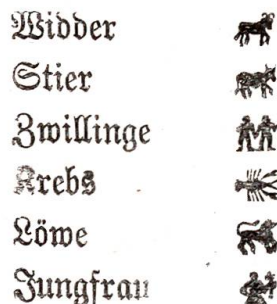 Widder
Stier
Zwillinge
Krebs
Löwe
Jungfrau